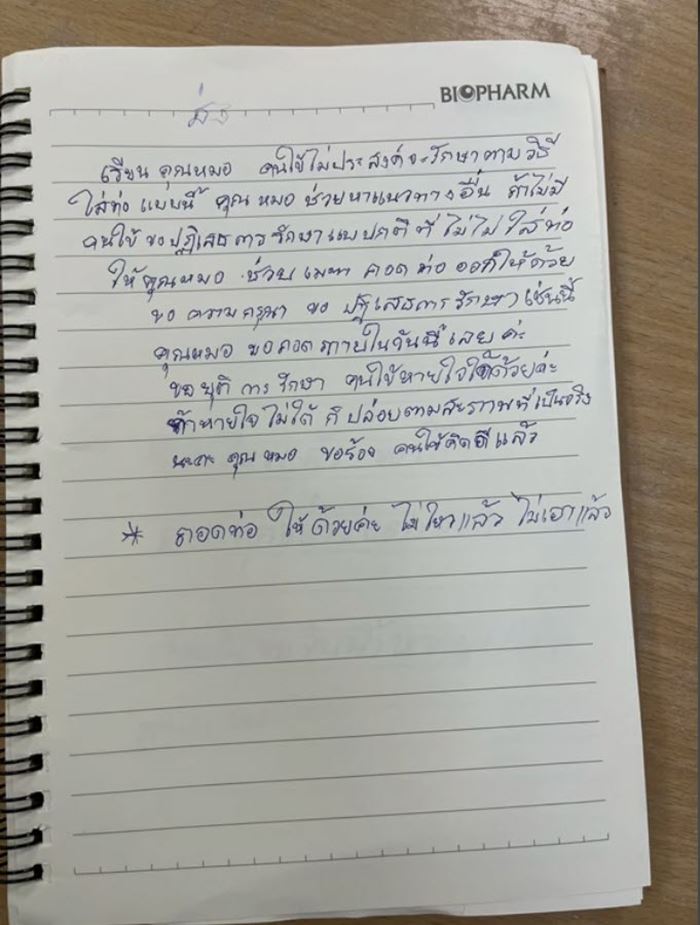 BIOPHARM
เรียน คุณหมอ คนไข้ไม่ประสงค์จะรักษาตามวิธี
ใส่ท่อ แบบนี้ คุณ หมอ ช่วยหาแนวทางอื่น ถ้าไม่มี
คนไข้ ขอปฏิเสธการรักษาแบบปกติ ที่ ไม่ไม่ ใส่ท่อ
ให้คุณหมอ ช่วย เมตตา ถอด ท่อ ออกให้ด้วย
ขอ ความกรุณา ขอ ปฏิเสธการ รักษา เช่นนี้
คุณหมอ ขอถอด ภายในวันนี้ เลย ค่ะ
ขอยุติ การ รักษา คนไข้หายใจได้ด้วยค่ะ
ถ้าหายใจ ไม่ได้ ก็ ปล่อยตามสภาพที่เป็นจริง
นะคะ คุณ หมอ ขอร้อง คนไข้คิดดีแล้ว
* ถอดท่อ ให้ ด้วยค่ะ ไม่ไหวแล้ว ไม่เอาแล้ว